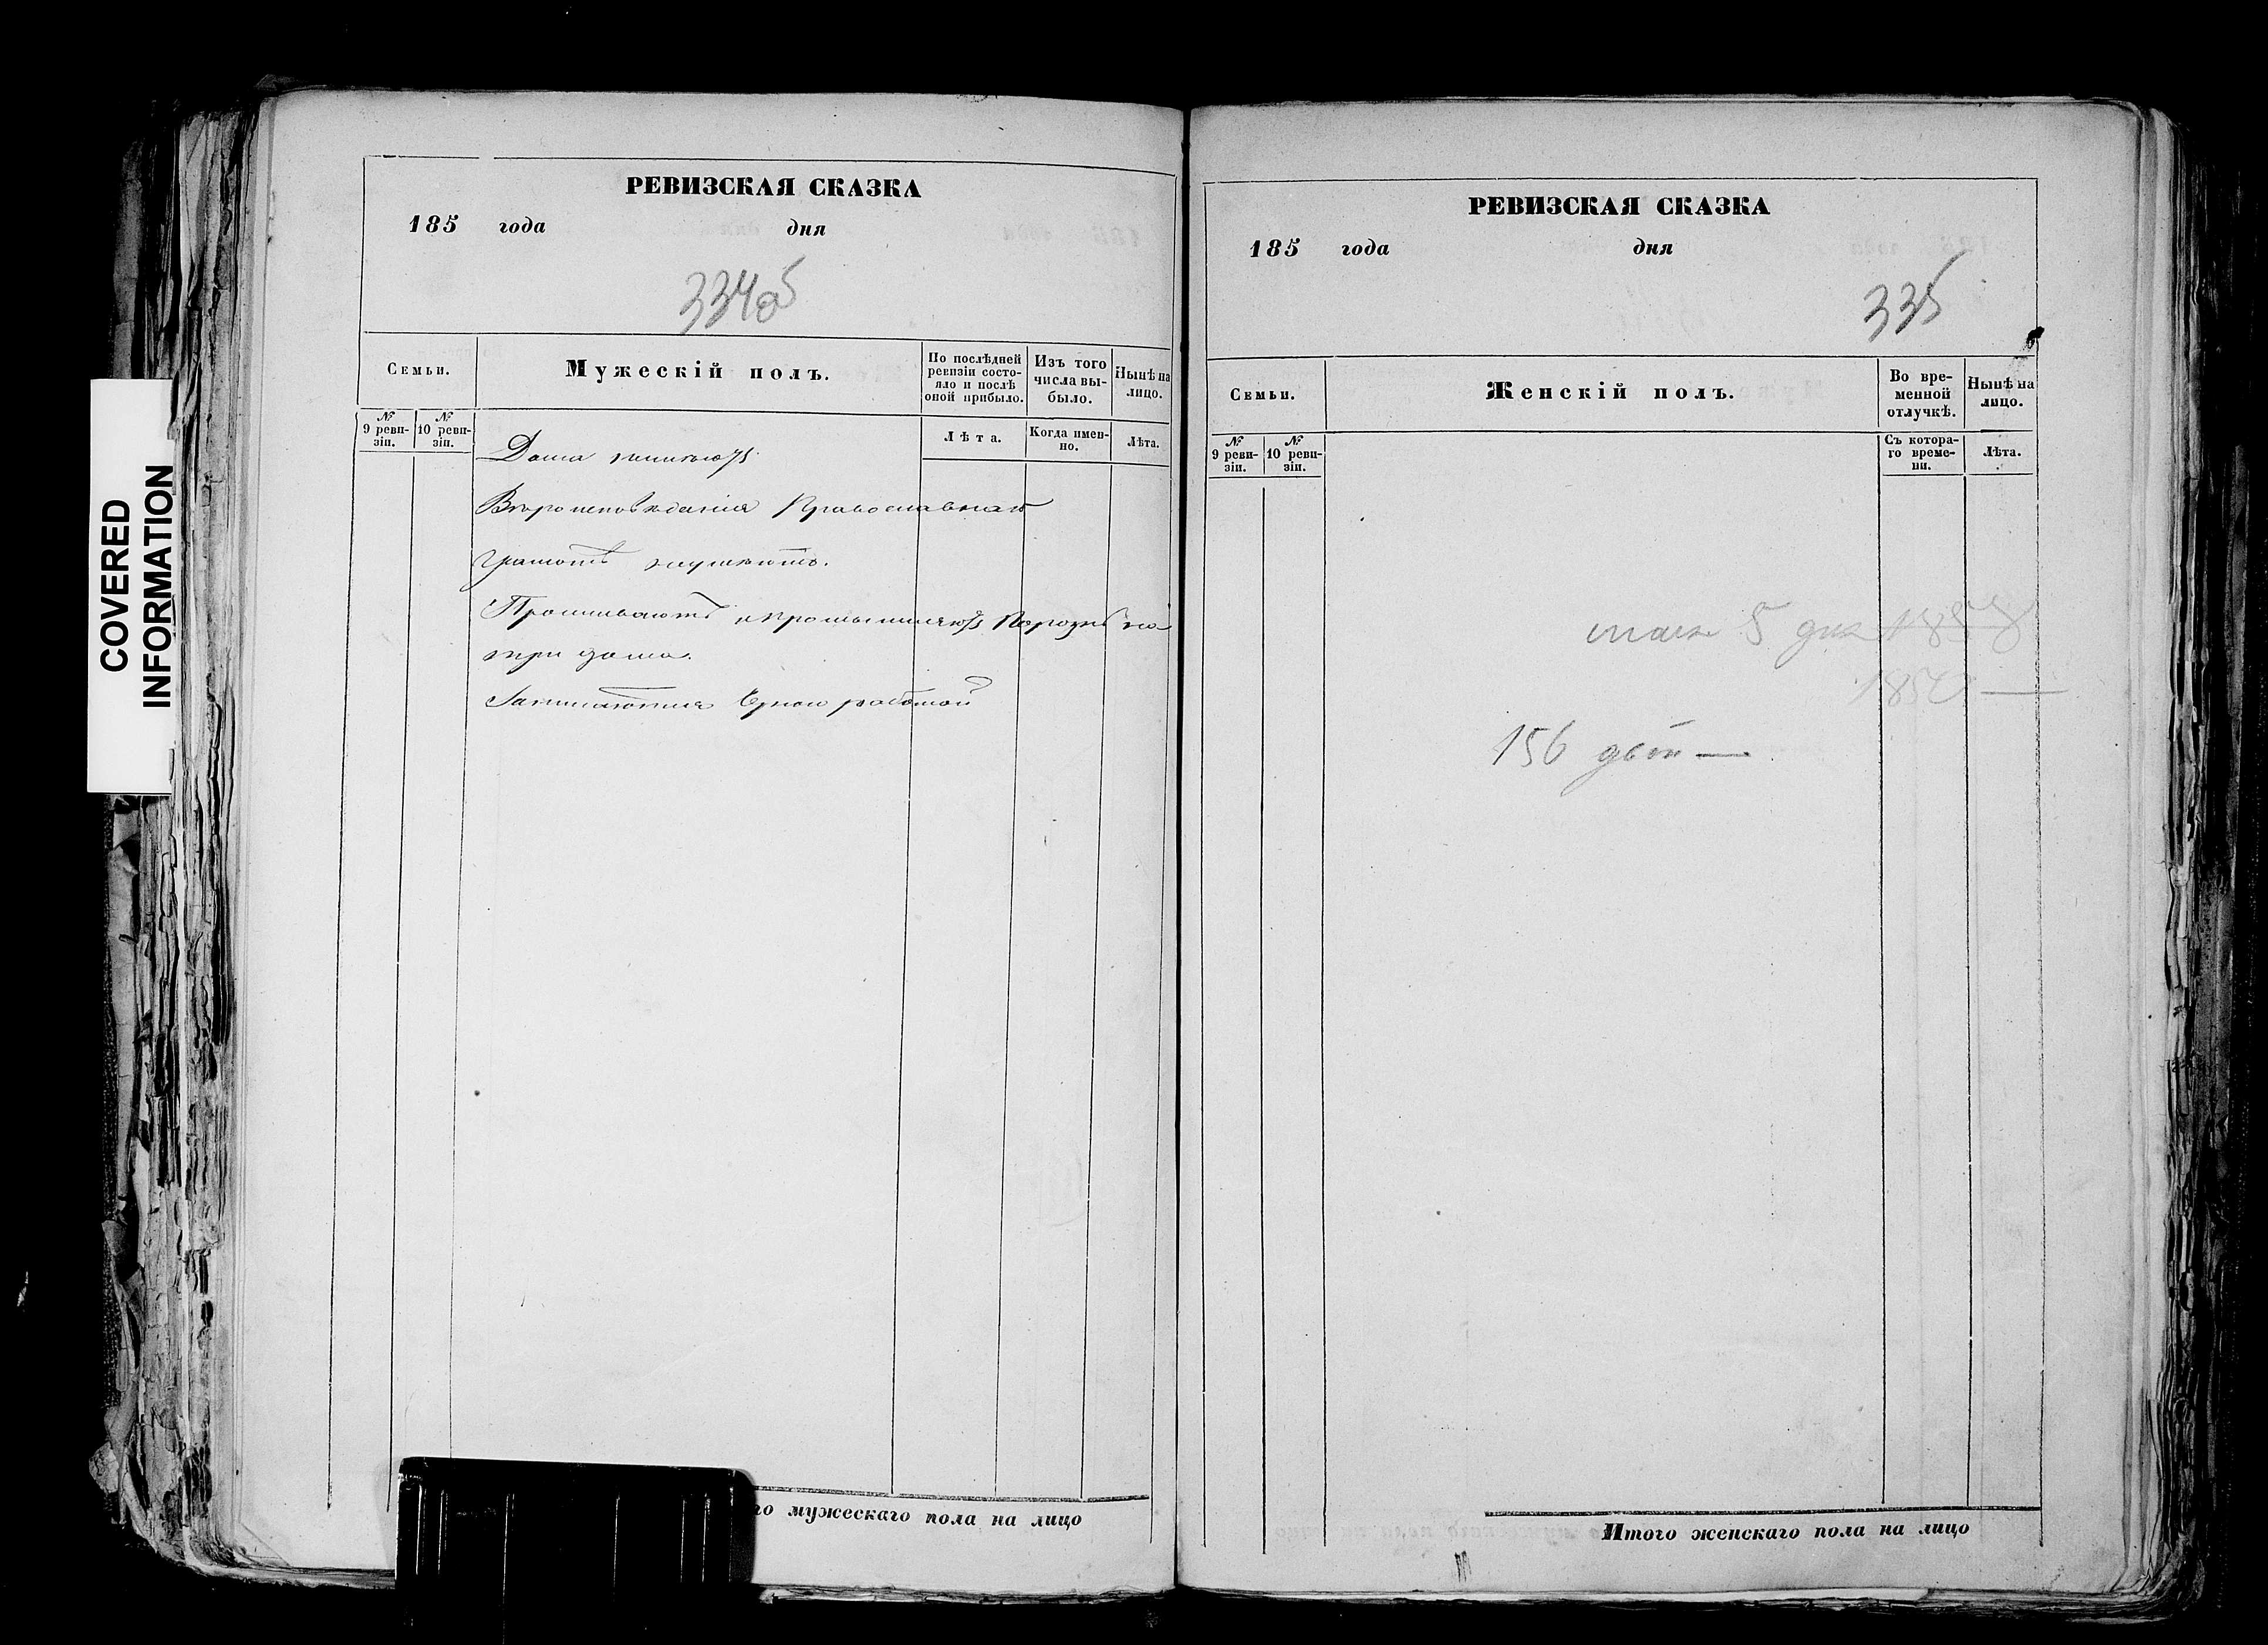 COVERED
INFORMATION
РЕВИЗСКАЯ СКАЗКА
185 года дня
334об
Семьи.
Мужескій полъ.
По послѣдней
ревизіи состо-
яло и послѣ
оной прибыло.
Изъ того
числа вы-
было.
Нынѣ на
лицо.
№
9 реви-
зіи.
№
10 реви-
зіи.
Лѣта.
Когда имен-
но.
Лѣта.
Дома
Вѣроисповѣданія Православнаго
грамотѣ
Проживаютъ на
три дома.
Занимаются работой
го мужескаго пола на лицо
РЕВИЗСКАЯ СКАЗКА
185 года дня
335
Семьи.
Женскій полъ.
Во вре-
менной
отлучкѣ.
Нынѣ на
лицо.
№
9 реви-
зіи.
№
10 реви-
зіи.
Съ котора-
го време-
ни.
Лѣта.
5 дня 1858
185
156
Итого женскаго пола на лицо